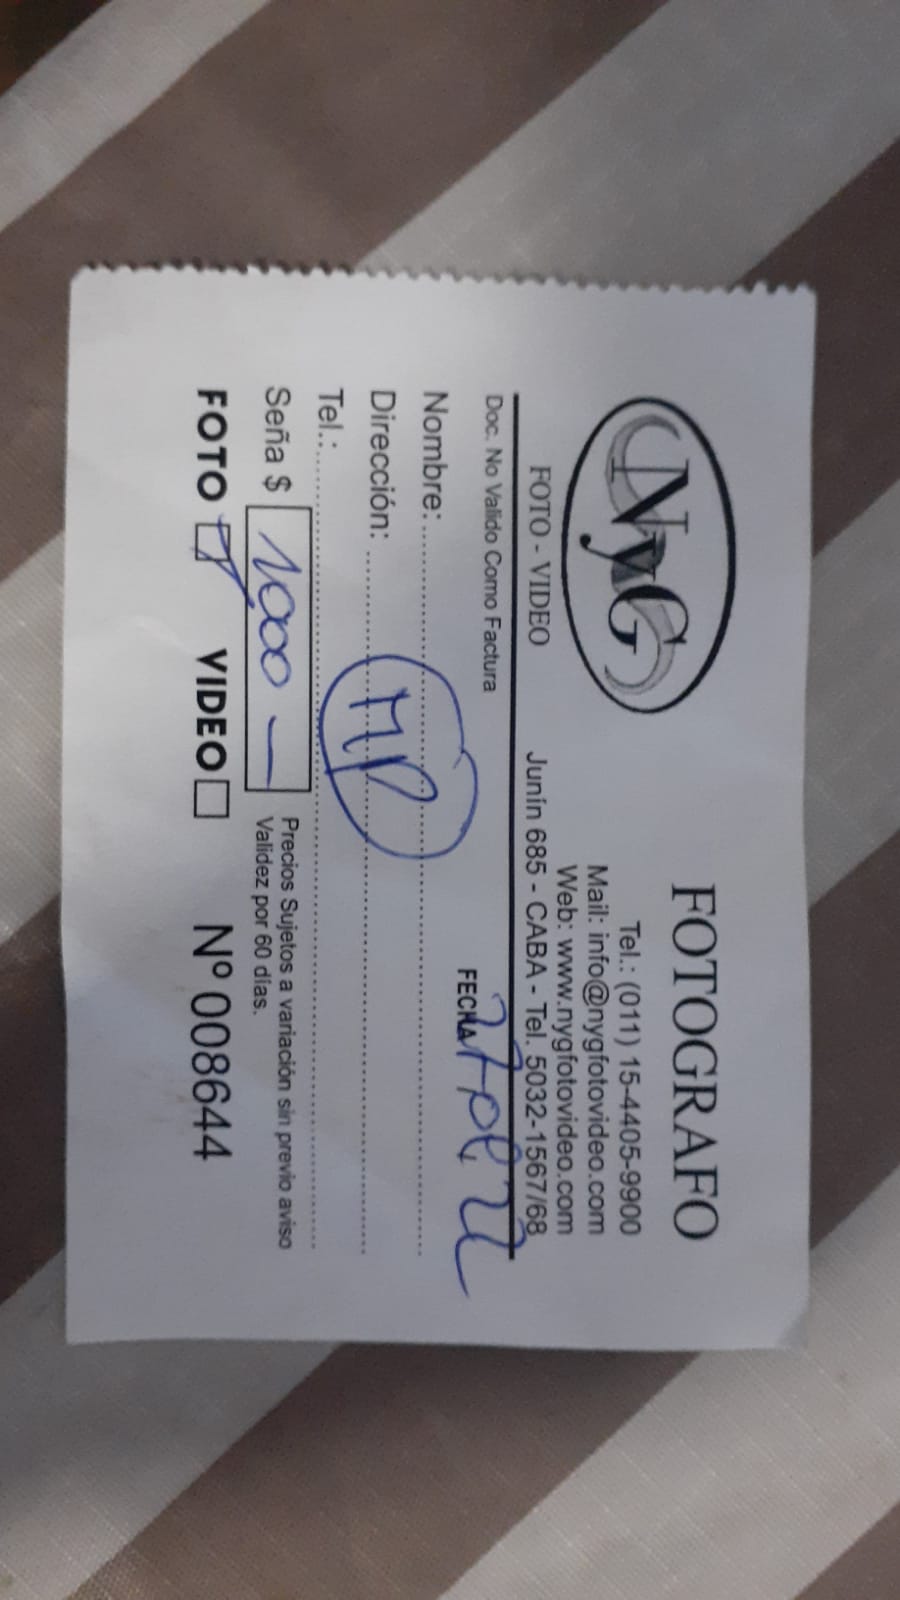 NyG
FOTOGRAFO
Tel.: (011) 15-4405-9900
Mail: info@nygfotovideo.com
Web: www.nygfotovideo.com
FOTO - VIDEO Junín 685 - CABA - Tel. 5032-1567/68
Doc. No Valido Como Factura
FECHA
Nombre:
MP
Dirección:
Tel.:
Seña $ 1000 —
Precios Sujetos a variación sin previo aviso
Validez por 60 días.
FOTO VIDEO Nº 008644